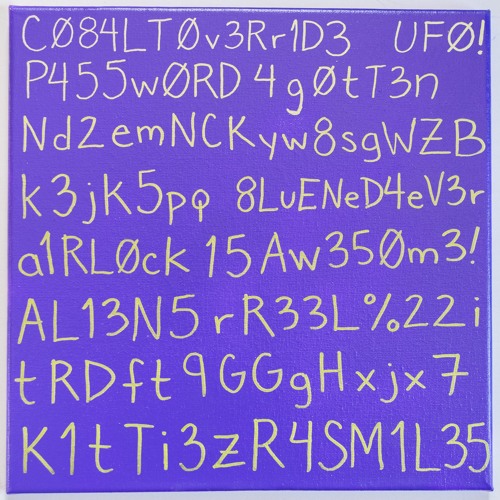 CØ84LTØv3Rr1D3 UFØ!
P455wØRD 4gØtT3n
Nd2emNCKyw8sgWZB
k3jK5pq 8LuENeD4eV3r
a1RLØck 15Aw350m3!
AL13N5rR33L%22i
tRDft9GGgHxjx7
K1tTi3zR4SM1L35